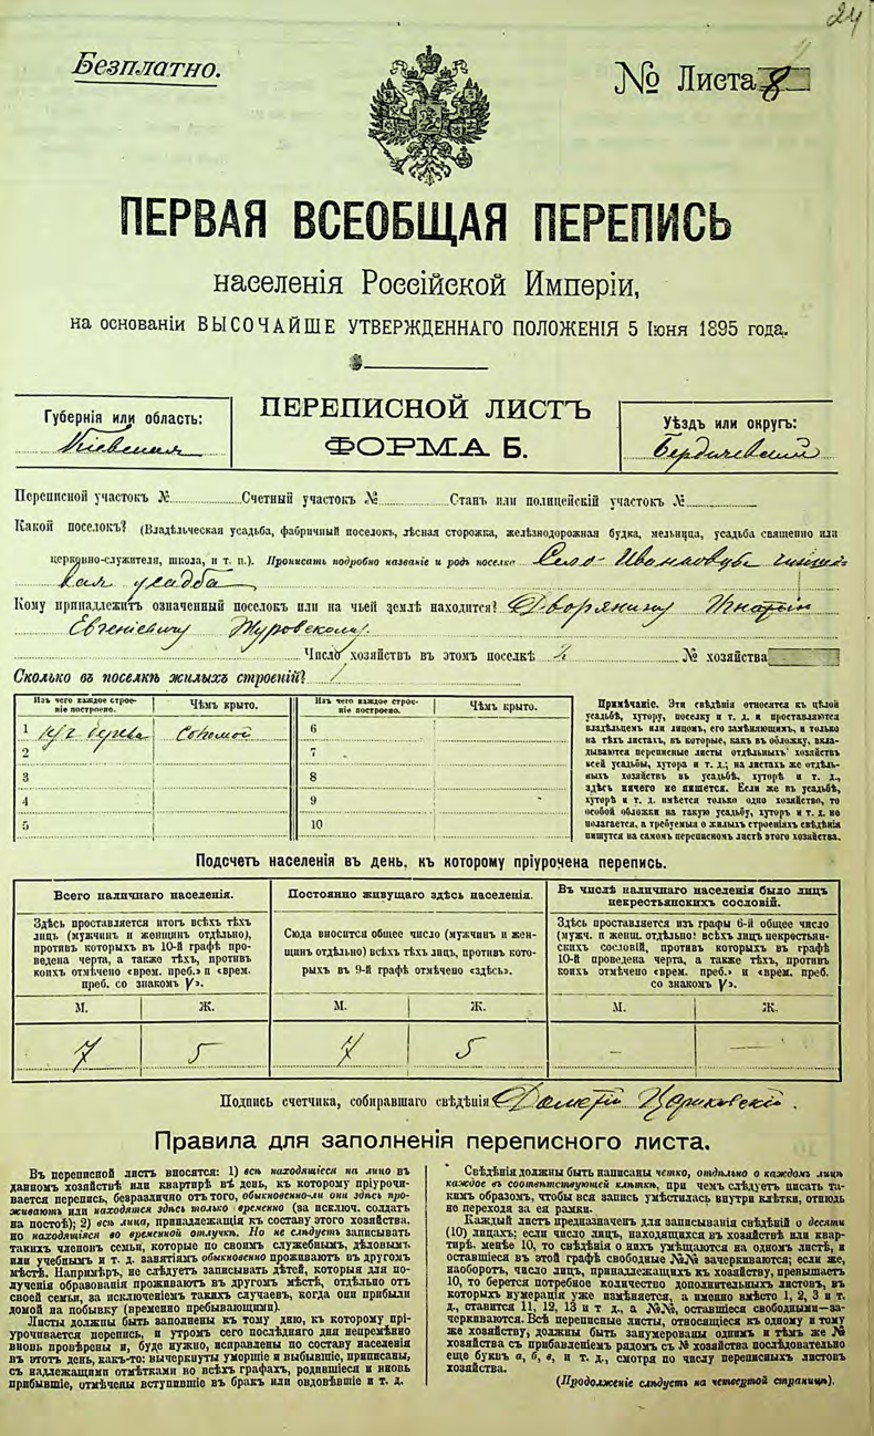 24
Безплатно.
№ Листа 8
ПЕРВАЯ ВСЕОБЩАЯ ПЕРЕПИСЬ
населенія Россійской Имперіи,
на основаніи ВЫСОЧАЙШЕ УТВЕРЖДЕННАГО ПОЛОЖЕНІЯ 5 Іюня 1895 года.
Губернія или область:
Кіевская
ПЕРЕПИСНОЙ ЛИСТЪ
ФОРМА Б.
Уѣздъ или округъ:
Бердичевскій
Переписной участокъ № Счетный участокъ № Станъ или полицейскій участокъ №
Какой поселокъ? (Владѣльческая усадьба, фабричный поселокъ, лѣсная сторожка, желѣзнодорожная будка, мельница, усадьба священно или
церковно-служителя, школа, и т. п.). Прописать подробно названіе и родъ поселка Село
усадьба
Кому принадлежитъ означенный поселокъ или на чьей землѣ находится? Дворянину
Евгеніевичу Журовскому.
Число хозяйствъ въ этомъ поселкѣ 2 № хозяйства
Сколько въ поселкѣ жилыхъ строеній? 1
Изъ чего каждое строе-
ніе построено.
Чѣмъ крыто.
Изъ чего каждое строе-
ніе построено.
Чѣмъ крыто.
1 изъ дерева соломой 6
2 7
3 8
4 9
5 10
Примѣчаніе. Эти свѣдѣнія относятся къ цѣлой
усадьбѣ, хутору, поселку и т. д. и проставляются
владѣльцемъ или лицомъ, его замѣняющимъ, и только
на тѣхъ листахъ, въ которые, какъ въ обложку, вкла-
дываются переписные листы отдѣльныхъ хозяйствъ
всей усадьбы, хутора и т. д.; на листахъ же отдѣль-
ныхъ хозяйствъ въ усадьбѣ, хуторѣ и т. д.,
здѣсь ничего не пишется. Если же въ усадьбѣ,
хуторѣ и т. д. имѣется только одно хозяйство, то
особой обложки на такую усадьбу, хуторъ и т. д. не
полагается, а требуемыя о жилыхъ строеніяхъ свѣдѣнія
пишутся на самомъ переписномъ листѣ этого хозяйства.
Подсчетъ населенія въ день, къ которому пріурочена перепись.
Всего наличнаго населенія.
Здѣсь проставляется итогъ всѣхъ тѣхъ
лицъ (мужчинъ и женщинъ отдѣльно),
противъ которыхъ въ 10-й графѣ про-
ведена черта, а также тѣхъ, противъ
коихъ отмѣчено «врем. преб.» и «врем.
преб. со знакомъ V».
М. Ж.
7 5
Постоянно живущаго здѣсь населенія.
Сюда вносится общее число (мужчинъ и жен-
щинъ отдѣльно) всѣхъ тѣхъ лицъ, противъ кото-
рыхъ въ 9-й графѣ отмѣчено «здѣсь».
М. Ж.
7 5
Въ числѣ наличнаго населенія было лицъ
некрестьянскихъ сословій.
Здѣсь проставляется изъ графы 6-й общее число
(мужч. и женщ. отдѣльно) всѣхъ лицъ некрестьян-
скихъ сословій, противъ которыхъ въ графѣ
10-й проведена черта, а также тѣхъ, противъ
коихъ отмѣчено «врем. преб.» и «врем. преб.
со знакомъ V».
М. Ж.
- —
Подпись счетчика, собиравшаго свѣдѣнія
Правила для заполненія переписного листа.
Въ переписной листъ вносятся: 1) всѣ находящіеся на лицо въ
данномъ хозяйствѣ или квартирѣ въ день, къ которому пріурочи-
вается перепись, безразлично отъ того, обыкновенно-ли они здѣсь про-
живаютъ или находятся здѣсь только временно (за исключ. солдатъ
на постоѣ); 2) всѣ лица, принадлежащія къ составу этого хозяйства,
но находящіяся во временной отлучкѣ. Но не слѣдуетъ записывать
такихъ членовъ семьи, которые по своимъ служебнымъ, дѣловымъ
или учебнымъ и т. д. занятіямъ обыкновенно проживаютъ въ другомъ
мѣстѣ. Напримѣръ, не слѣдуетъ записывать дѣтей, которыя для по-
лученія образованія проживаютъ въ другомъ мѣстѣ, отдѣльно отъ
своей семьи, за исключеніемъ такихъ случаевъ, когда они прибыли
домой на побывку (временно пребывающими).
Листы должны быть заполнены къ тому дню, къ которому прі-
урочивается перепись, и утромъ сего послѣдняго дня непремѣнно
вновь провѣрены и, буде нужно, исправлены по составу населенія
въ этотъ день, какъ-то: вычеркнуты умершіе и выбывшіе, приписаны,
съ надлежащими отмѣтками во всѣхъ графахъ, родившіеся и вновь
прибывшіе, отмѣчены вступившіе въ бракъ или овдовѣвшіе и т. д.
Свѣдѣнія должны быть написаны четко, отдѣльно о каждомъ лицѣ
каждое въ соотвѣтствующей клѣткѣ, при чемъ слѣдуетъ писать та-
кимъ образомъ, чтобы вся запись умѣстилась внутри клѣтки, отнюдь
не переходя за ея рамки.
Каждый листъ предназначенъ для записыванія свѣдѣній о десяти
(10) лицахъ; если число лицъ, находящихся въ хозяйствѣ или квар-
тирѣ, менѣе 10, то свѣдѣнія о нихъ умѣщаются на одномъ листѣ, и
оставшіеся въ этой графѣ свободные №№ зачеркиваются; если же,
наоборотъ, число лицъ, принадлежащихъ къ хозяйству, превышаетъ
10, то берется потребное количество дополнительныхъ листовъ, въ
которыхъ нумерація уже измѣняется, а именно вмѣсто 1, 2, 3 и т.
д., ставится 11, 12, 13 и т д., а №№, оставшіеся свободными—за-
черкиваются. Всѣ переписные листы, относящіеся къ одному и тому
же хозяйству, должны быть занумерованы однимъ и тѣмъ же №
хозяйства съ прибавленіемъ рядомъ съ № хозяйства послѣдовательно
еще буквъ а, б, в, и т. д., смотря по числу переписныхъ листовъ
хозяйства.
(Продолженіе слѣдуетъ на четвертой страницѣ).